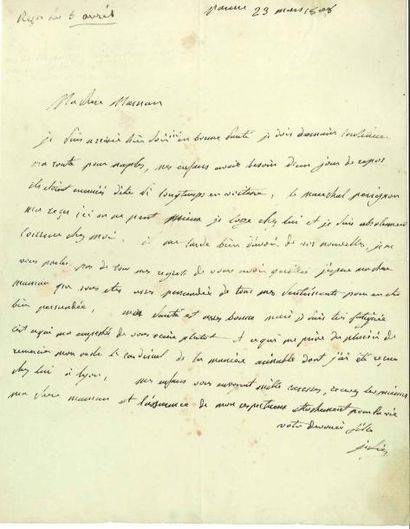 Reçu le 5 avril
parme 23 mars 1808
Ma chere Maman
je suis arrivée hier soir en bonne santé je dois demain continuer
ma route pour naples, mes enfans avait besoin d'un jour de repos
ils etoient ennuiés d'etre si longtemps en voiture, le marechal perignon
m'a reçu ici on ne peut mieux je loge chez lui et je suis absolument
comme chez moi. il me tarde bien d'avoir de vos nouvelles, je ne
vous parle pas de tous mes regrets de vous avoir quittée j'espere ma chere
maman que vous etes assez persuadée de tous mes sentiments pour en etre
bien persuadée, ma santé est assez bonne mais je suis très fatiguée
c'est ce qui m'a empeché de vous ecrire plutot. et ce qui me prive du plaisir de
remercier mon oncle le cardinal de la maniere aimable dont j'ai été reçue
chez lui à lyon, mes enfans vous envoyent mille caresses, recevez les miennes
ma chere maman et l'assurance de mon respectueux attachement pour la vie
votre devouée fille
julie